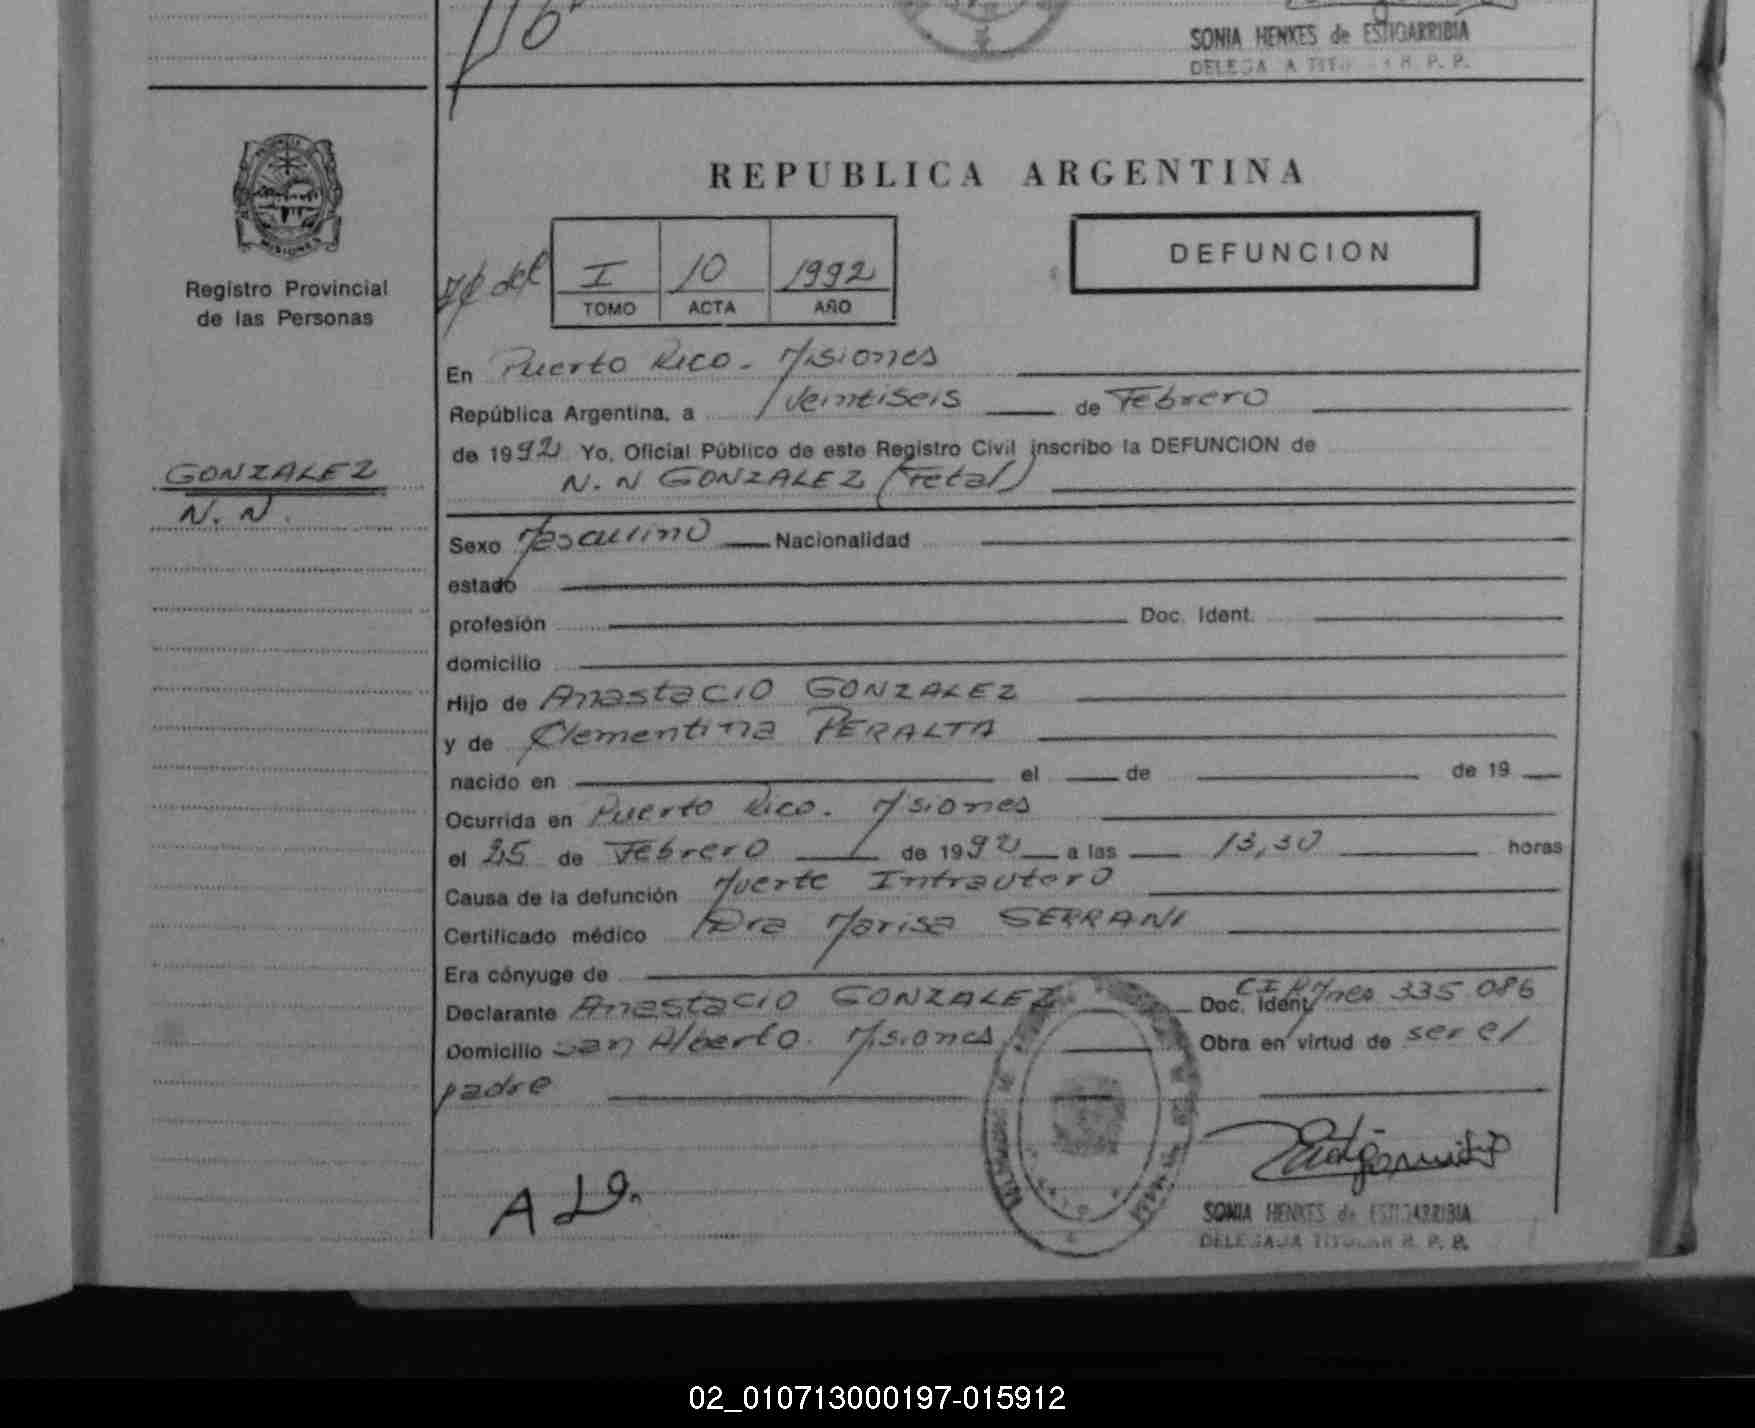 SONIA HENXES de ESTIGARRIBIA
DELEGADA TITULAR R. P. P.
MISIONES
Registro Provincial
de las Personas
GONZALEZ
N. N.
REPUBLICA ARGENTINA
I 10 1992
TOMO ACTA AÑO
DEFUNCION
En Puerto Rico. Misiones
República Argentina, a veintiseis de Febrero
de 1992 Yo, Oficial Público de este Registro Civil inscribo la DEFUNCION de
N. N GONZALEZ (Fetal)
Sexo Masculino Nacionalidad
estado
profesión Doc. Ident.
domicilio
Hijo de Anastacio GONZALEZ
y de Clementina PERALTA
nacido en el de de 19
Ocurrida en Puerto Rico. Misiones
el 25 de Febrero de 1992 a las 13,30 horas
Causa de la defunción Muerte Intrautero
Certificado médico Dra Marisa SERRANI
Era cónyuge de
Declarante Anastacio GONZALEZ Doc. Ident. CI Mnes 335.086
Domicilio San Alberto. Misiones Obra en virtud de ser el
padre
SONIA HENXES de ESTIGARRIBIA
DELEGADA TITULAR R. P. P.
02_010713000197-015912